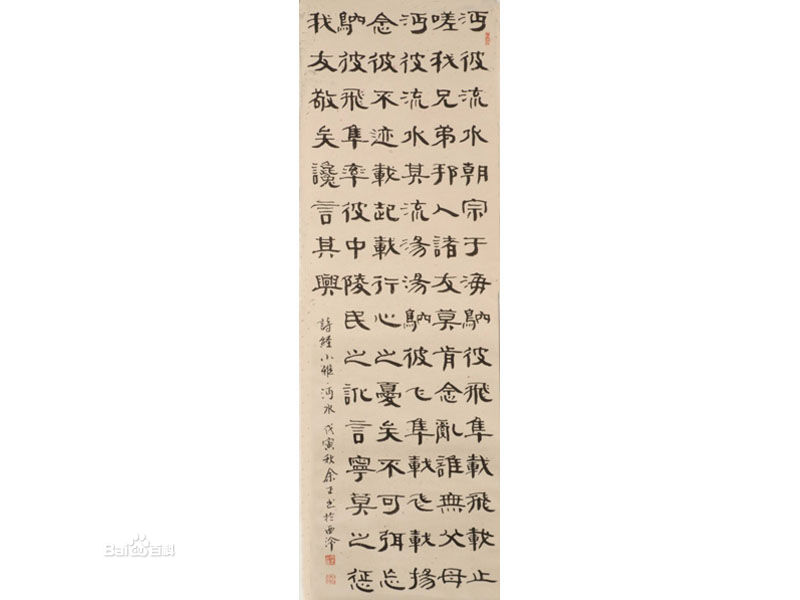 沔彼流水朝宗于海鴥彼飛隼載飛載止
嗟我兄弟邦人諸友莫肯念亂誰無父母
沔彼流水其流湯湯鴥彼飞隼載飞載揚
念彼不迹載起載行心之憂矣不可弭忘
鴥彼飛隼率彼中陵民之訛言寧莫之懲
我友敬矣讒言其興
詩經小雅·沔水 戊寅秋余正书於西泠
Bai百科